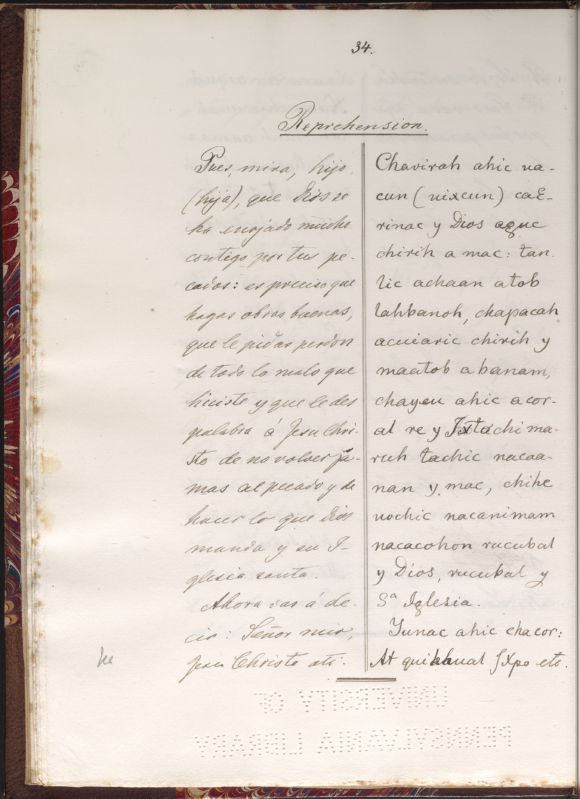 34.
Reprehension.
Pues, mira, hijo
(hija), que Dios se
ha enojado mucho
contigo por tus pe-
cados: es preciso que
hagas obras buenas,
que le pidas perdon
de todo lo malo que
hiciste y que le des
palabra á Jesu Chri-
sto de no volver ja-
mas al pecado y de
hacer lo que Dios
manda y su I-
glesia santa.
Ahora vas á de-
cir: Señor mio,
Jesu Christo etc.
Chavirah ahic va-
cun (vixcun) caE-
rinac y Dios aque
chirih a mac: tan
lic achaan atob
lahbanoh, chapacah
acuiaric chirih y
maatob abanam,
chayeu ahic acor-
al re y Ixtachima-
ruh tachic nacaa-
nan y mac, chihe
vochic nacanimam
nacacohon rucubal
y Dios, rucubal y
Sª Iglesia.
Yunac ahic chacor:
At quihaual JXpo etc.
UNIVERSITY OF
PENNSYLVANIA LIBRARY